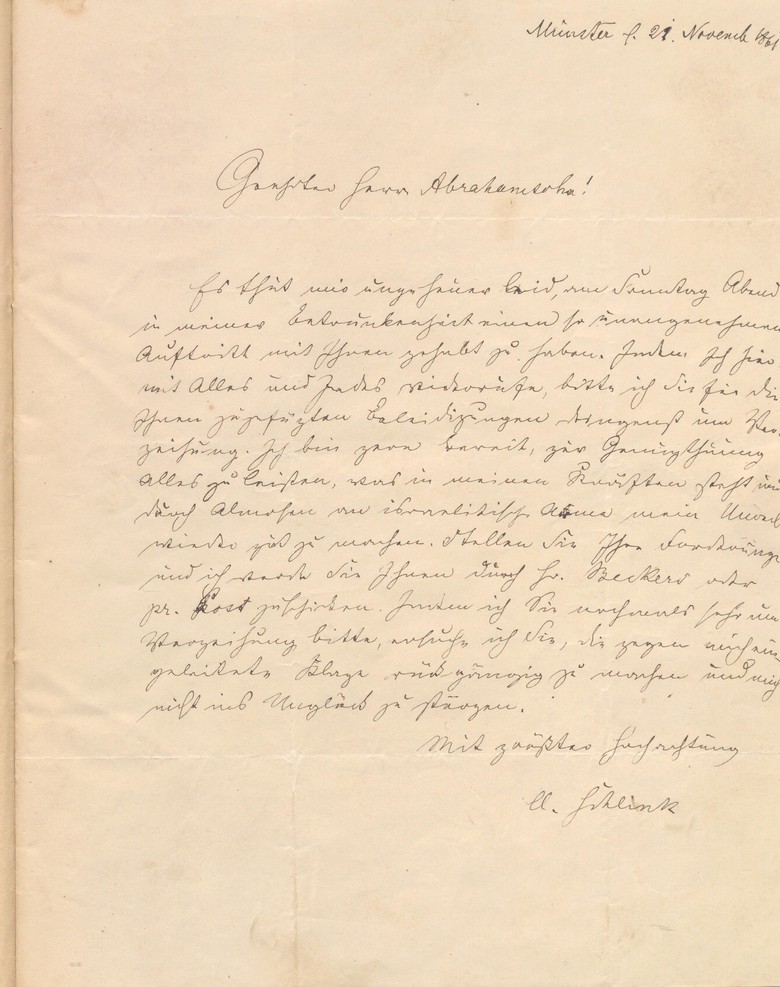 Münster d. 21. Novemb 1861
Geehrter Herr Abrahamsohn!
Es thut mir ungeheuer leid, am Sonntag Abend
in meiner Betrunkenheit einen so unangenehmen
Auftritt mit Ihnen gehabt zu haben. Indem ich hier
mit Alles und Jedes widerrufe, bitte ich Sie für die
Ihnen zugefügten Beleidigungen dringenst um Ver-
zeihung. Ich bin gern bereit, zur Genugthuung
Alles zu leisten, was in meinen Kräften steht und
durch Almosen an israelitische Arme mein Unrecht
wieder gut zu machen. Stellen Sie Ihre Forderunge
und ich werde Sie Ihnen durch Hr. Beckers oder
pr. Post zuschicken. Indem ich Sie nochmals sehr um
Verzeihung bitte, ersuche ich Sie, die gegen mich ein-
geleitete Klage rückgängig zu machen und mich
nicht ins Unglück zu stürzen.
Mit größter Hochachtung
Schlink